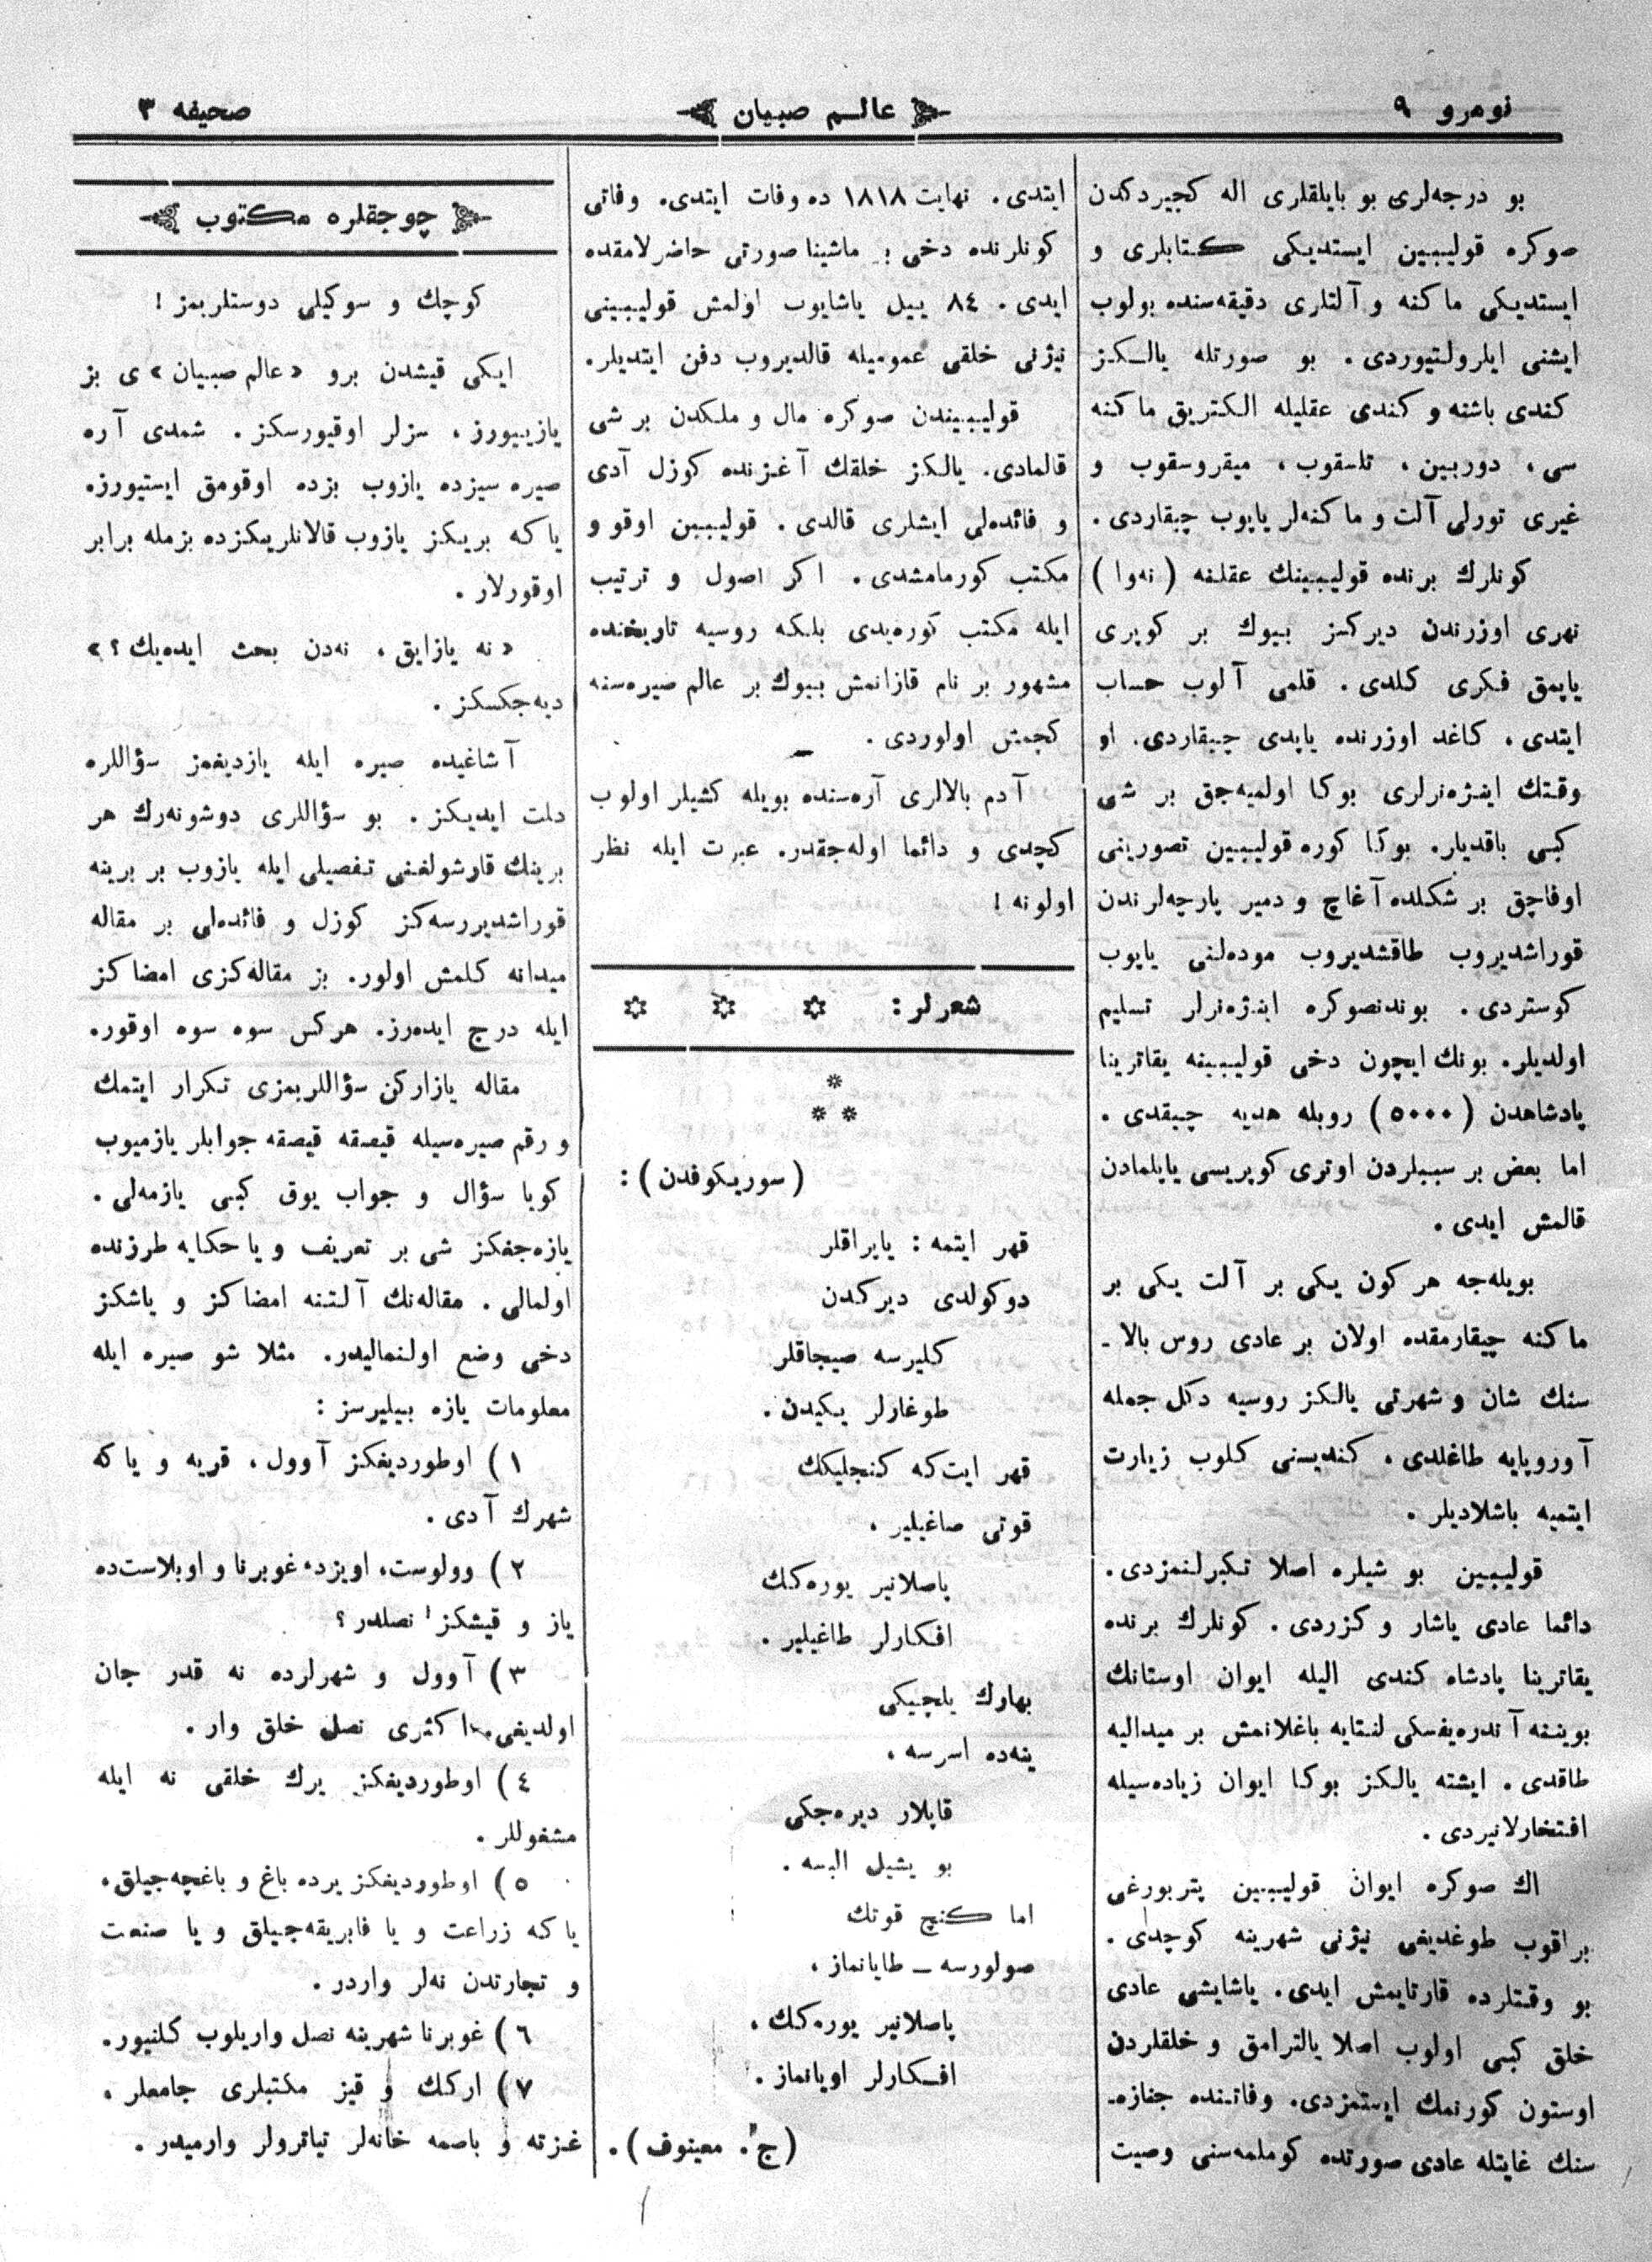 نومرو ٩
عالم صبيان
صحيفه ٣
بو درجه‌لری بو بايلقلری اله كچيردكدن
صوكره قوليبين ايستديكی كتابلری و
ايستديكی ماكنه و آلتلری دقيقه‌سنده بولوب
ايشنی ايلرولتيوردی. بو صورتله يالكز
كندی باشنه و كندی عقليله الكتريق ماكنه
سی، دوربين، تلسقوب، ميقروسقوب و
غيری تورلی آلت و ماكنه‌لر ياپوب چيقاردی.
كونلرك برنده قوليبينك عقلنه (نه‌وا)
نهری اوزرندن ديركسز بيوك بر كوپری
ياپمق فكری كلدی. قلمی آلوب حساب
ايتدی، كاغد اوزرنده ياپدی چيقاردی. او
وقتك اينژه‌نرلری بوكا اولميه‌جق بر شی
كبی باقديلر. بوكا كوره قوليبين تصورينی
اوفاچق بر شكلده آغاچ و دمير پارچه‌لرندن
قوراشديروب طاقشديروب موده‌لنی ياپوب
كوستردی. بوندنصوكره اينژه‌نرلر تسليم
اولديلر. بونك ايچون دخی قوليبينه يقاترينا
پادشاهدن (٥٠٠٠) روبله هديه چيقدی.
اما بعض بر سببلردن اوتری كوپريسی ياپلمادن
قالمش ايدی.
بويله‌جه هر كون يكی بر آلت يكی بر
ماكنه چيقارمقده اولان بر عادی روس بالا ـ
سنك شان و شهرتی يالكز روسيه دكل جمله
آوروپايه طاغلدی، كنديسنی كلوب زيارت
ايتميه باشلاديلر.
قوليبين بو شيلره اصلا تكبرلنمزدی.
دائما عادی ياشار و كزردی. كونلرك برنده
يقاترينا پادشاه كندی اليله ايوان اوستانك
بويننه آندره‌يفسكی لنتايه باغلانمش بر ميداليه
طاقدی. ايشته يالكز بوكا ايوان زياده‌سيله
افتخارلانيردی.
اك صوكره ايوان قوليبين پتربورغی
براقوب طوغديغی نيژنی شهرينه كوچدی.
بو وقتلرده قارتايمش ايدی. ياشايشی عادی
خلق كبی اولوب اصلا يالترامق و خلقلردن
اوستون كورنمك ايستمزدی. وفاتنده جنازه‌ـ
سنك غايتله عادی صورتده كوملمه‌سنی وصيت
ايتدی. نهايت ١٨١٨ ده وفات ايتدی. وفاتی
كونلرنده دخی بر ماشينا صورتی حاضرلامقده
ايدی. ٨٤ ييل ياشايوب اولمش قوليبينی
نيژنی خلقی عموميله قالديروب دفن ايتديلر.
قوليبيندن صوكره مال و ملكدن بر شی
قالمادی. يالكز خلقك آغزنده كوزل آدی
و فائده‌لی ايشلری قالدی. قوليبين اوقو و
مكتب كورمامشدی. اكر اصول و ترتيب
ايله مكتب كوره‌يدی بلكه روسيه تاريخنده
مشهور بر نام قازانمش بيوك بر عالم صيره‌سنه
كچمش اولوردی.
آدم بالالری آره‌سنده بويله كشيلر اولوب
كچدی و دائما اوله‌جقدر. عبرت ايله نظر
اولونه!
شعرلر:
(سوريكوفدن):
قهر ايتمه: ياپراقلر
دوكولدی ديركدن
كليرسه صيجاقلر
طوغارلر يكيدن.
قهر ايت‌كه كنجليكك
قوتی صاغيلير،
پاصلانير يوره‌كك
افكارلر طاغيلير.
بهارك يلچيكی
ينه‌ده اسرسه،
قاپلار ديره‌جكی
بو يشيل البسه.
اما كنج قوتك
صولورسه ــ طايانماز،
پاصلانير يوره‌كك،
افكارلر اويانماز.
(ج. معينوف).
چوجقلره مكتوب
كوچك و سوكيلی دوستلريمز!
ايكی قيشدن برو «عالم صبيان»ی بز
يازييورز، سزلر اوقيورسكز. شمدی آره
صيره سيزده يازوب بزده اوقومق ايستيورز.
ياكه بريكز يازوب قالانلريكزده بزمله برابر
اوقورلار.
«نه يازايق، نه‌دن بحث ايده‌يك؟»
ديه‌جكسكز.
آشاغيده صيره ايله يازديغمز سؤاللره
دلت ايديكز. بو سؤاللری دوشونه‌رك هر
برينك قارشولغنی تفصيلی ايله يازوب بر برينه
قوراشديررسه‌كز كوزل و فائده‌لی بر مقاله
ميدانه كلمش اولور. بز مقاله‌كزی امضاكز
ايله درج ايده‌رز. هركس سوه سوه اوقور.
مقاله يازاركن سؤاللريمزی تكرار ايتمك
و رقم صيره‌سيله قيصقه قيصقه جوابلر يازميوب
كويا سؤال و جواب يوق كبی يازمه‌لی.
يازه‌جغكز شی بر تعريف و يا حكايه طرزنده
اولمالی. مقاله‌نك آلتنه امضاكز و ياشكز
دخی وضع اولنماليدر. مثلا شو صيره ايله
معلومات يازه بيليرسز:
١) اوطورديغكز آوول، قريه و ياكه
شهرك آدی.
٢) وولوست، اويزد، غوبرنا و اوبلاست‌ده
ياز و قيشكز نصلدر؟
٣) آوول و شهرلرده نه قدر جان
اولديغی. اكثری نصل خلق وار.
٤) اوطورديغكز يرك خلقی نه ايله
مشغوللر.
٥) اوطورديغكز يرده باغ و باغچه‌جيلق،
ياكه زراعت و يا فابريقه‌جيلق و يا صنعت
و تجارتدن نه‌لر واردر.
٦) غوبرنا شهرينه نصل واريلوب كلنيور.
٧) اركك و قيز مكتبلری جامعلر،
غزته و باصمه خانه‌لر تياترولر وارميدر.